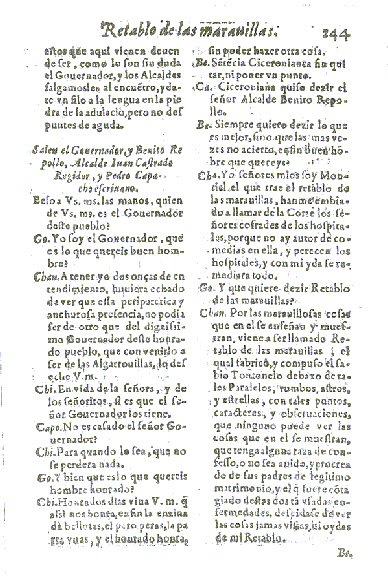 Retablo de las marauillas. 244
estos que aqui vienen deuen
de ser, como lo son sin duda
el Gouernador, y los Alcaldes
salgamosles al encuẽtro, y da-
te vn filo a la lengua en la pie
dra de la adulaciõ, pero no des
puntes de aguda.
Salen el Gouernador, y Benito Re
pollo, Alcalde Iuan Castrado
Regidor, y Pedro Capa-
cho escriuano.
Beso a Vs. ms. las manos, quien
de Vs. ms. es el Gouernador
deste pueblo?
Go. Yo soy el Gouernador, que
es lo que quereys buen hom-
bre?
Chan. A tener yo dos onças de en
tendimiento, huuiera echado
de ver que essa peripatetica y
anchurosa presencia, no podia
ser de otro que del dignissi-
mo Gouernador deste honra-
do pueblo, que con venirlo a
ser de las Algarrouillas, lo des
eche V. m.
Chi. En vida de la señora, y de
los señoritos, si es que el se-
ñor Gouernador los tiene.
Capo. No es casado el señor Go-
uernador?
Chi. Para quando lo sea, que no
se perdera nada.
Go. Y bien que es lo que quereis
hombre honrado?
Chi. Honrados dias viua V. m. q̃
assi nos honra, en fin la enzina
da bellotas, el pero peras, la pa
rra vuas, y el honrado honra,
sin poder hazer otra cosa.
Be. Sẽtẽcia Ciceronianca sin qui
tar, ni poner vn punto.
Ca. Ciceroniana quiso dezir el
señor Alcalde Benito Repo-
llo.
Be. Siempre quiero dezir lo que
es mejor, sino que las mas ve-
zes no acierto, en fin buen hõ-
bre que quereys?
Cha. Yo señores mios soy Mon-
tiel, el que trae el retablo de
las marauillas, hanme embia-
do a llamar de la Corte los se-
ñores cofrades de los hospita-
les, porque no ay autor de co-
medias en ella, y perecen los
hospitales, y con mi yda se re-
mediara todo.
Go. Y que quiere dezir Retablo
de las marauillas?
Chan. Por las marauillosas cosas
que en el se enseñan y mues-
tran, viene a ser llamado Re-
tablo de las marauillas; el
qual fabricò, y compuso el sa-
bio Tontonelo debaxo de ta-
les Paralelos, rumbos, astros,
y estrellas, con tales puntos,
caracteres, y obseruaciones,
que ninguno puede ver las
cosas que en el se muestran,
que tenga alguna raza de con-
fesso, o no sea auido, y procrea
do de sus padres de legitimo
matrimonio, y el q̃ fuere cõta
giado destas dos tã vsadas en-
fermedades, despidase de ver
las cosas jamas vistas, ni oydas
de mi Retablo.
Be.